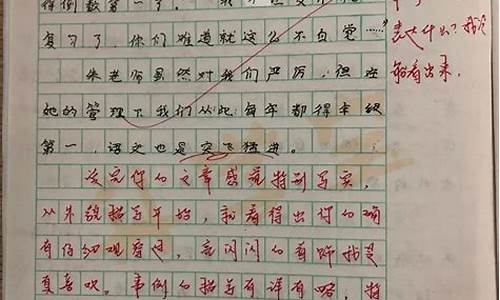 得倒数第一了。
复习了，你们难道就这么不自觉……"
朱老师虽然对我们严厉，但在
她的管理下我们从此每年都得年级
第一，语文也是突飞猛进。
读完你的文章感觉特别写实，
从外貌描写开始，就看得出你的确
有仔细观察过，亮闪闪的
真喜欢。事例的描写有详有略，将
表达什么？我没
能看出来。